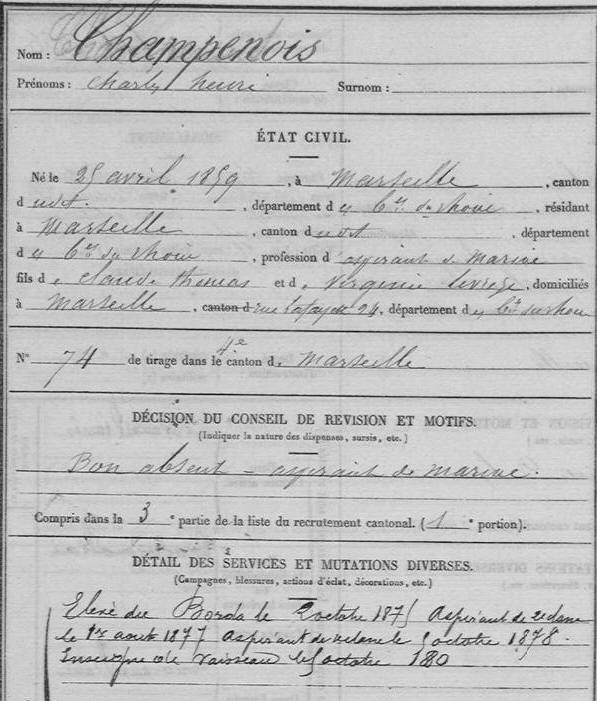 Nom : Champenois
Prénoms : Charles henri Surnom :
ÉTAT CIVIL.
Né le 25 avril 1859, à Marseille, canton
d udt., département d es B.ches du rhone, résidant
à Marseille, canton d udt, département
d es B.ches du rhone, profession d' aspirant de Marine
fils de Claude thomas et de Virginie, domiciliés
à Marseille, canton d rue Lafayette 24, département des B.ches du rhone
N° 74 de tirage dans le 4e canton de Marseille
DÉCISION DU CONSEIL DE REVISION ET MOTIFS.
(Indiquer la nature des dispenses, sursis, etc.)
Bon absent – aspirant de marine.
Compris dans la 3e partie de la liste du recrutement cantonal. (1e portion).
DÉTAIL DES SERVICES ET MUTATIONS DIVERSES.
(Campagnes, blessures, actions d'éclat, décorations, etc.)
Elève du Borda le octobre 1875 Aspirant de 2e classe
le 1er aout 1877 Aspirant de classe le 5 octobre 1878.
Enseigne de vaisseau le 5 octobre 1880